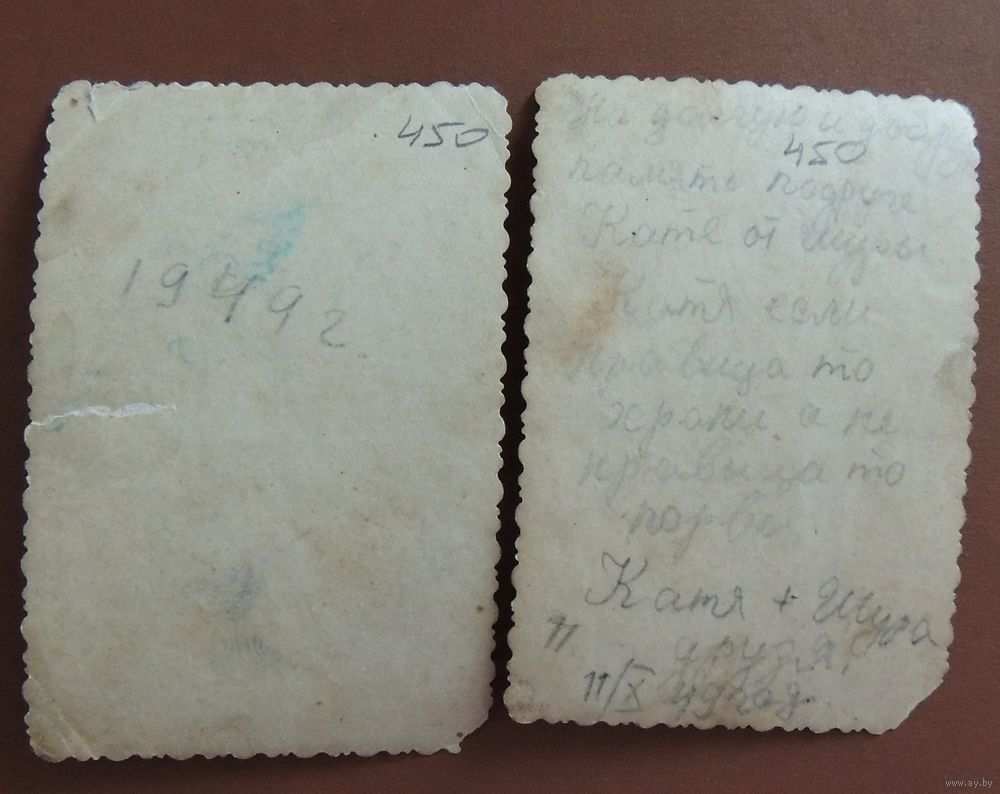 450
1949 г
На долгую и добрую
450
память подруге
Кате от Шуры
Катя если
нравица то
храни а не
нравица то
порви.
Катя + Шура
друзя,
11/X 49 год.
www.ay.by